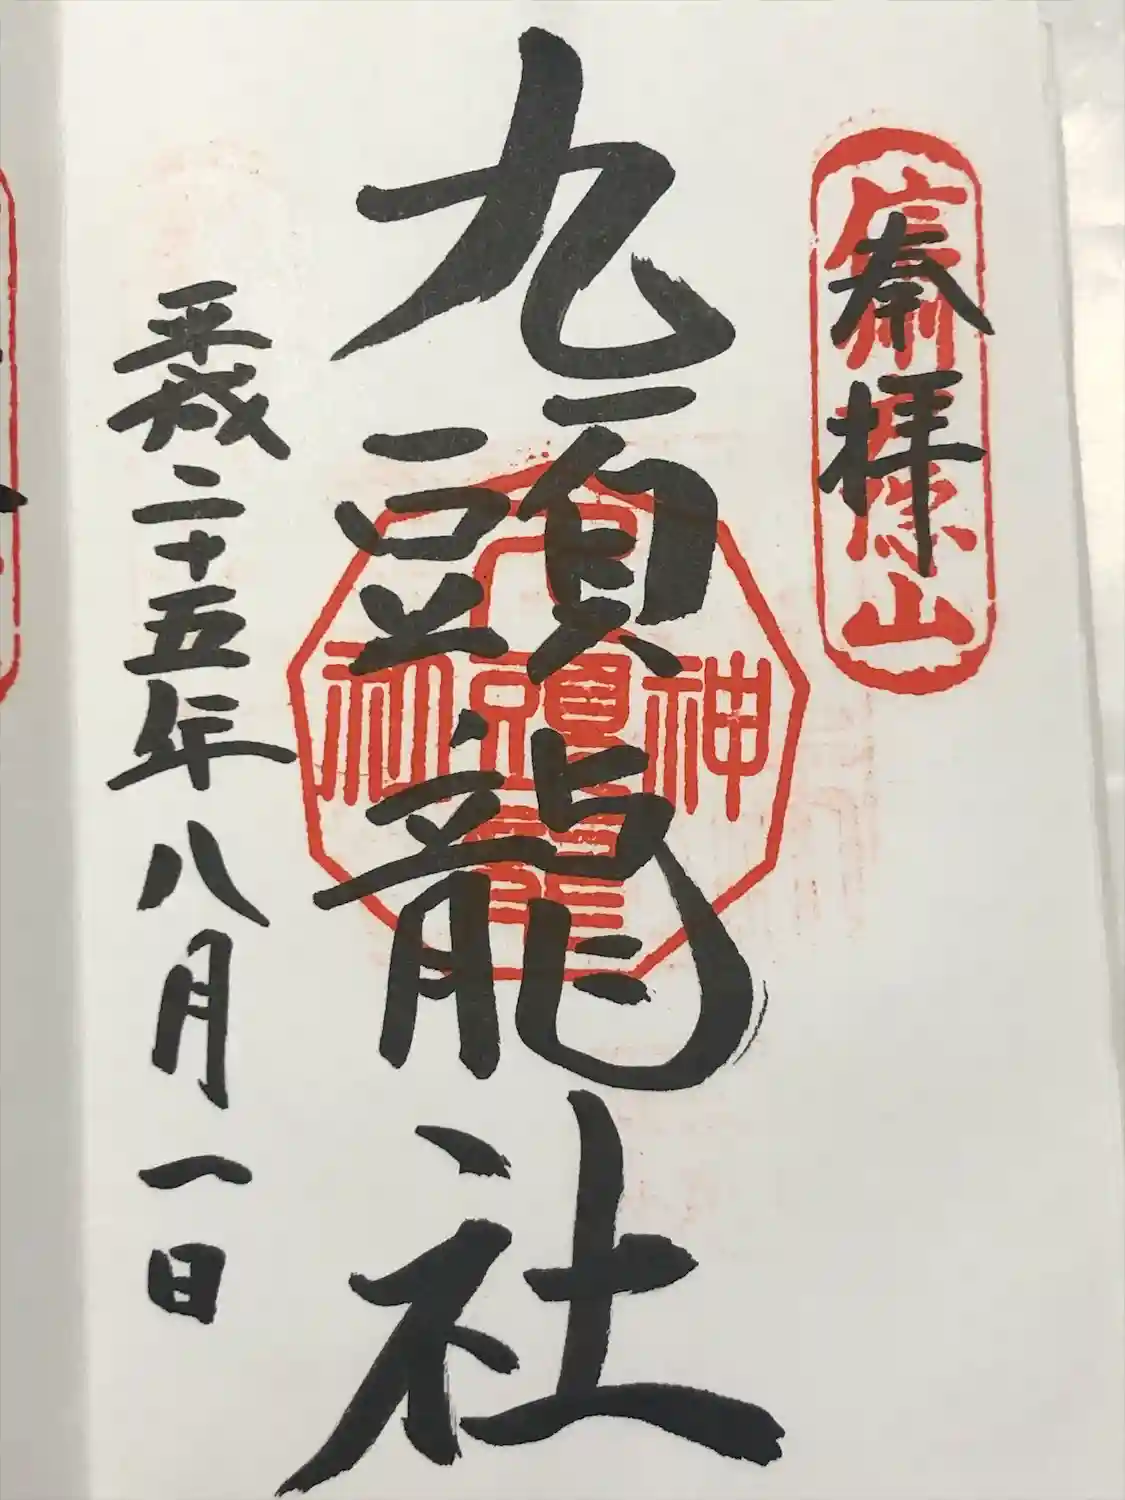 奉拝
信州戸隠山
九頭龍社
九頭龍
神社
平成二十五年八月一日